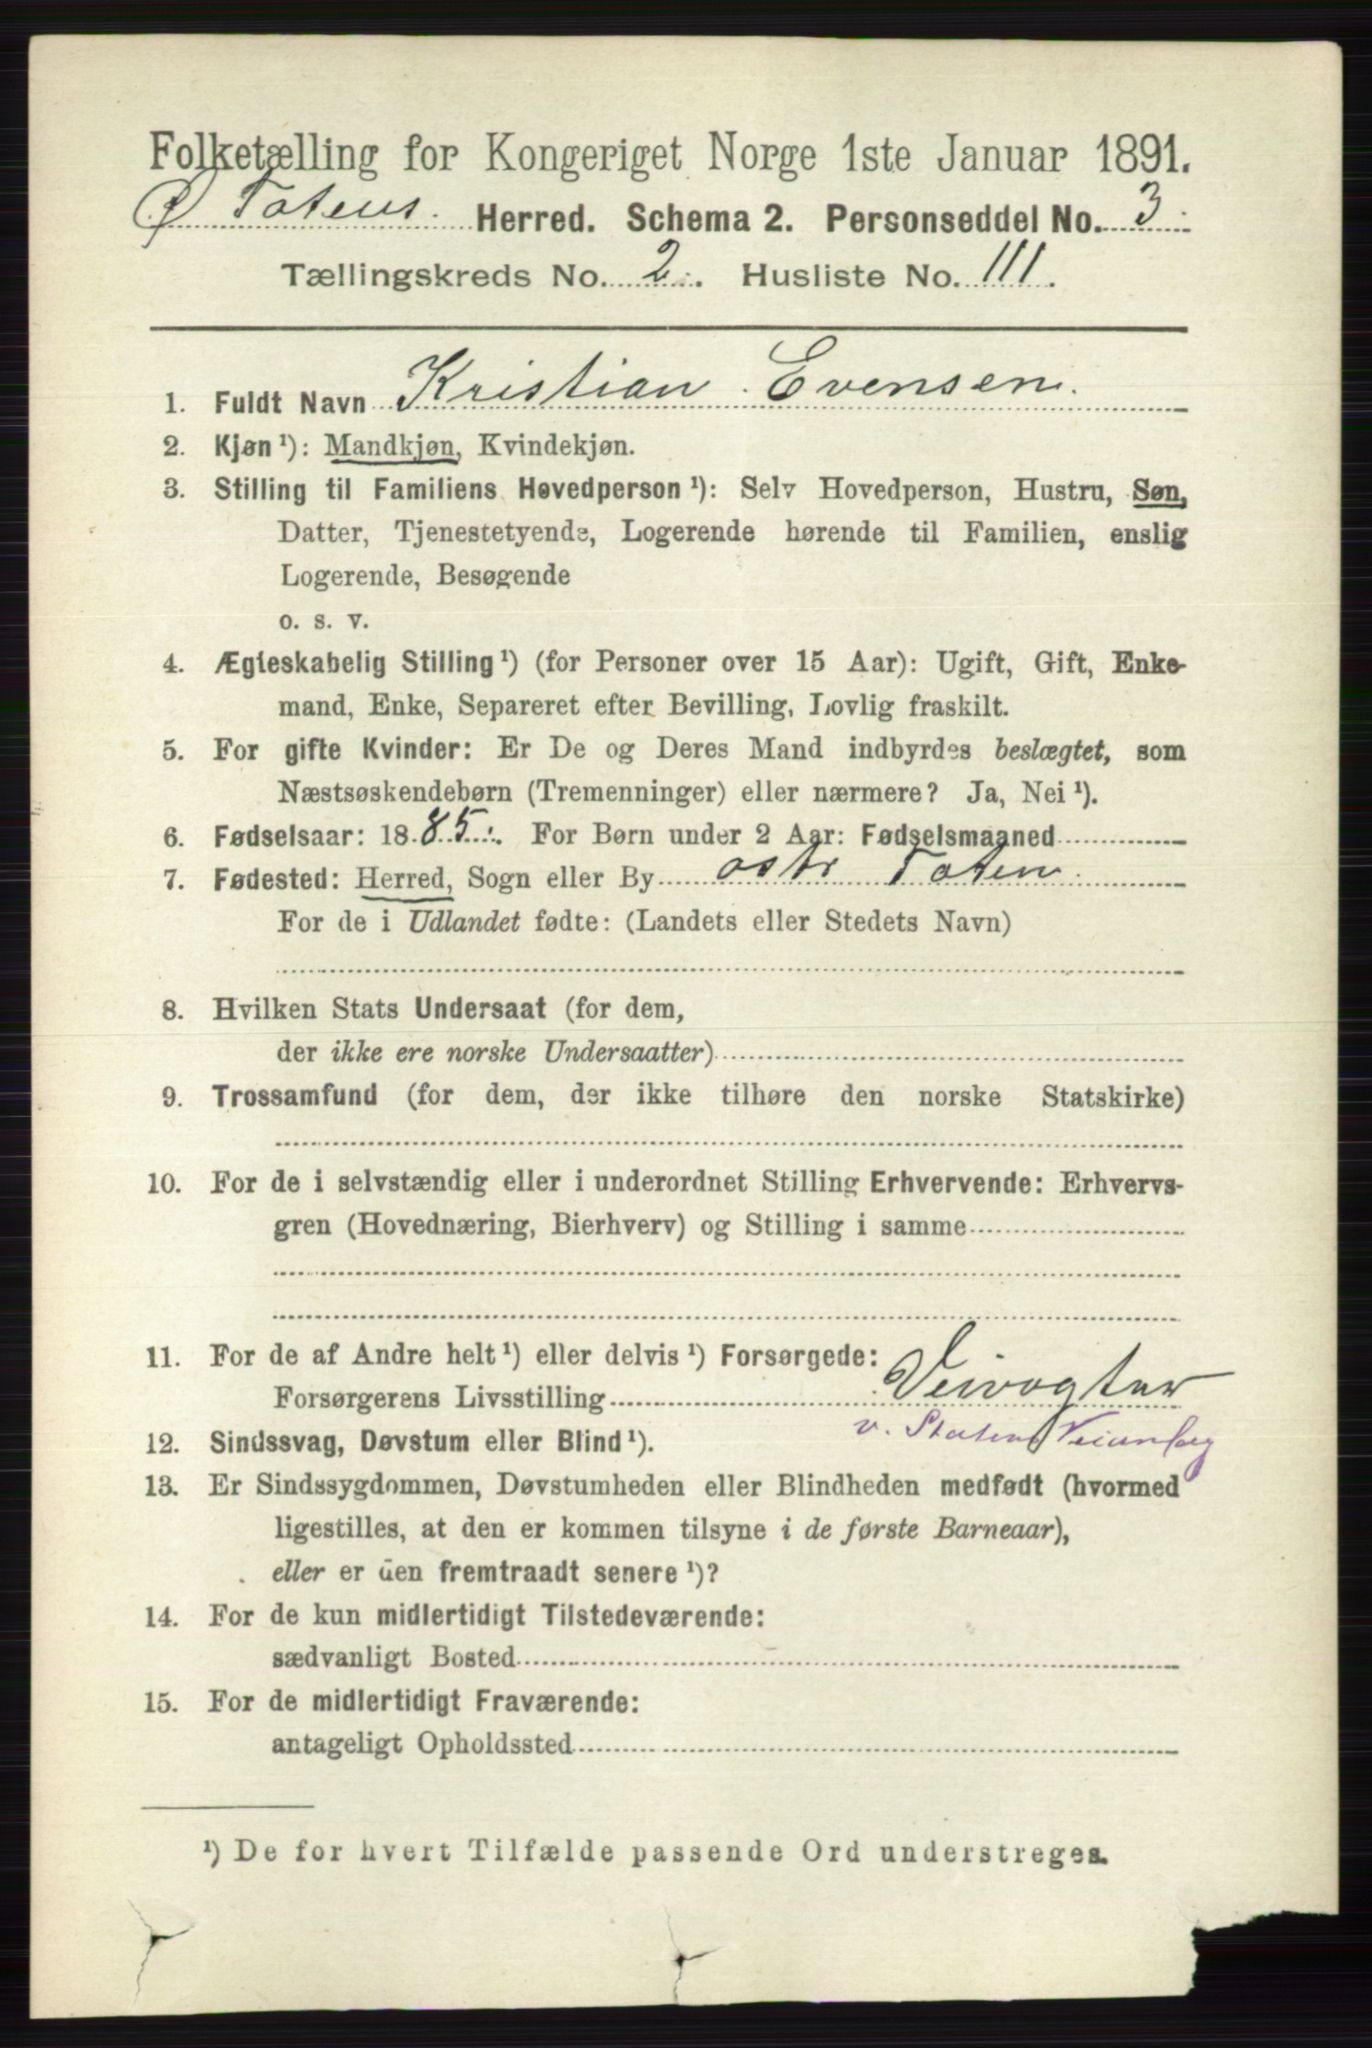 Folketælling for Kongeriget Norge 1ste Januar 1891.
Ø Totens. Herred. Schema 2. Personseddel No. 3.
Tællingskreds No. 2. Husliste No. 111.
1. Fuldt Navn Kristian Evensen.
2. Kjøn ¹): Mandkjøn, Kvindekjøn.
3. Stilling til Familiens Hovedperson ¹): Selv Hovedperson, Hustru, Søn,
Datter, Tjenestetyende, Logerende hørende til Familien, enslig
Logerende, Besøgende
o. s. v.
4. Ægteskabelig Stilling ¹) (for Personer over 15 Aar): Ugift, Gift, Enke-
mand, Enke, Separeret efter Bevilling, Lovlig fraskilt.
5. For gifte Kvinder: Er De og Deres Mand indbyrdes beslægtet, som
Næstsøskendebørn (Tremenninger) eller nærmere? Ja, Nei ¹).
6. Fødselsaar: 1885. For Børn under 2 Aar: Fødselsmaaned
7. Fødested: Herred, Sogn eller By ostr Toten
For de i Udlandet fødte: (Landets eller Stedets Navn)
8. Hvilken Stats Undersaat (for dem,
der ikke ere norske Undersaatter)
9. Trossamfund (for dem, der ikke tilhøre den norske Statskirke)
10. For de i selvstændig eller i underordnet Stilling Erhvervende: Erhvervs-
gren (Hovednæring, Bierhverv) og Stilling i samme
11. For de af Andre helt ¹) eller delvis ¹) Forsørgede:
Forsørgerens Livsstilling Veivogter
v. Statens
12. Sindssvag, Døvstum eller Blind ¹).
13. Er Sindssygdommen, Døvstumheden eller Blindheden medfødt (hvormed
ligestilles, at den er kommen tilsyne i de første Barneaar),
eller er den fremtraadt senere ¹)?
14. For de kun midlertidigt Tilstedeværende:
sædvanligt Bosted
15. For de midlertidigt Fraværende:
antageligt Opholdssted
¹) De for hvert Tilfælde passende Ord understreges.